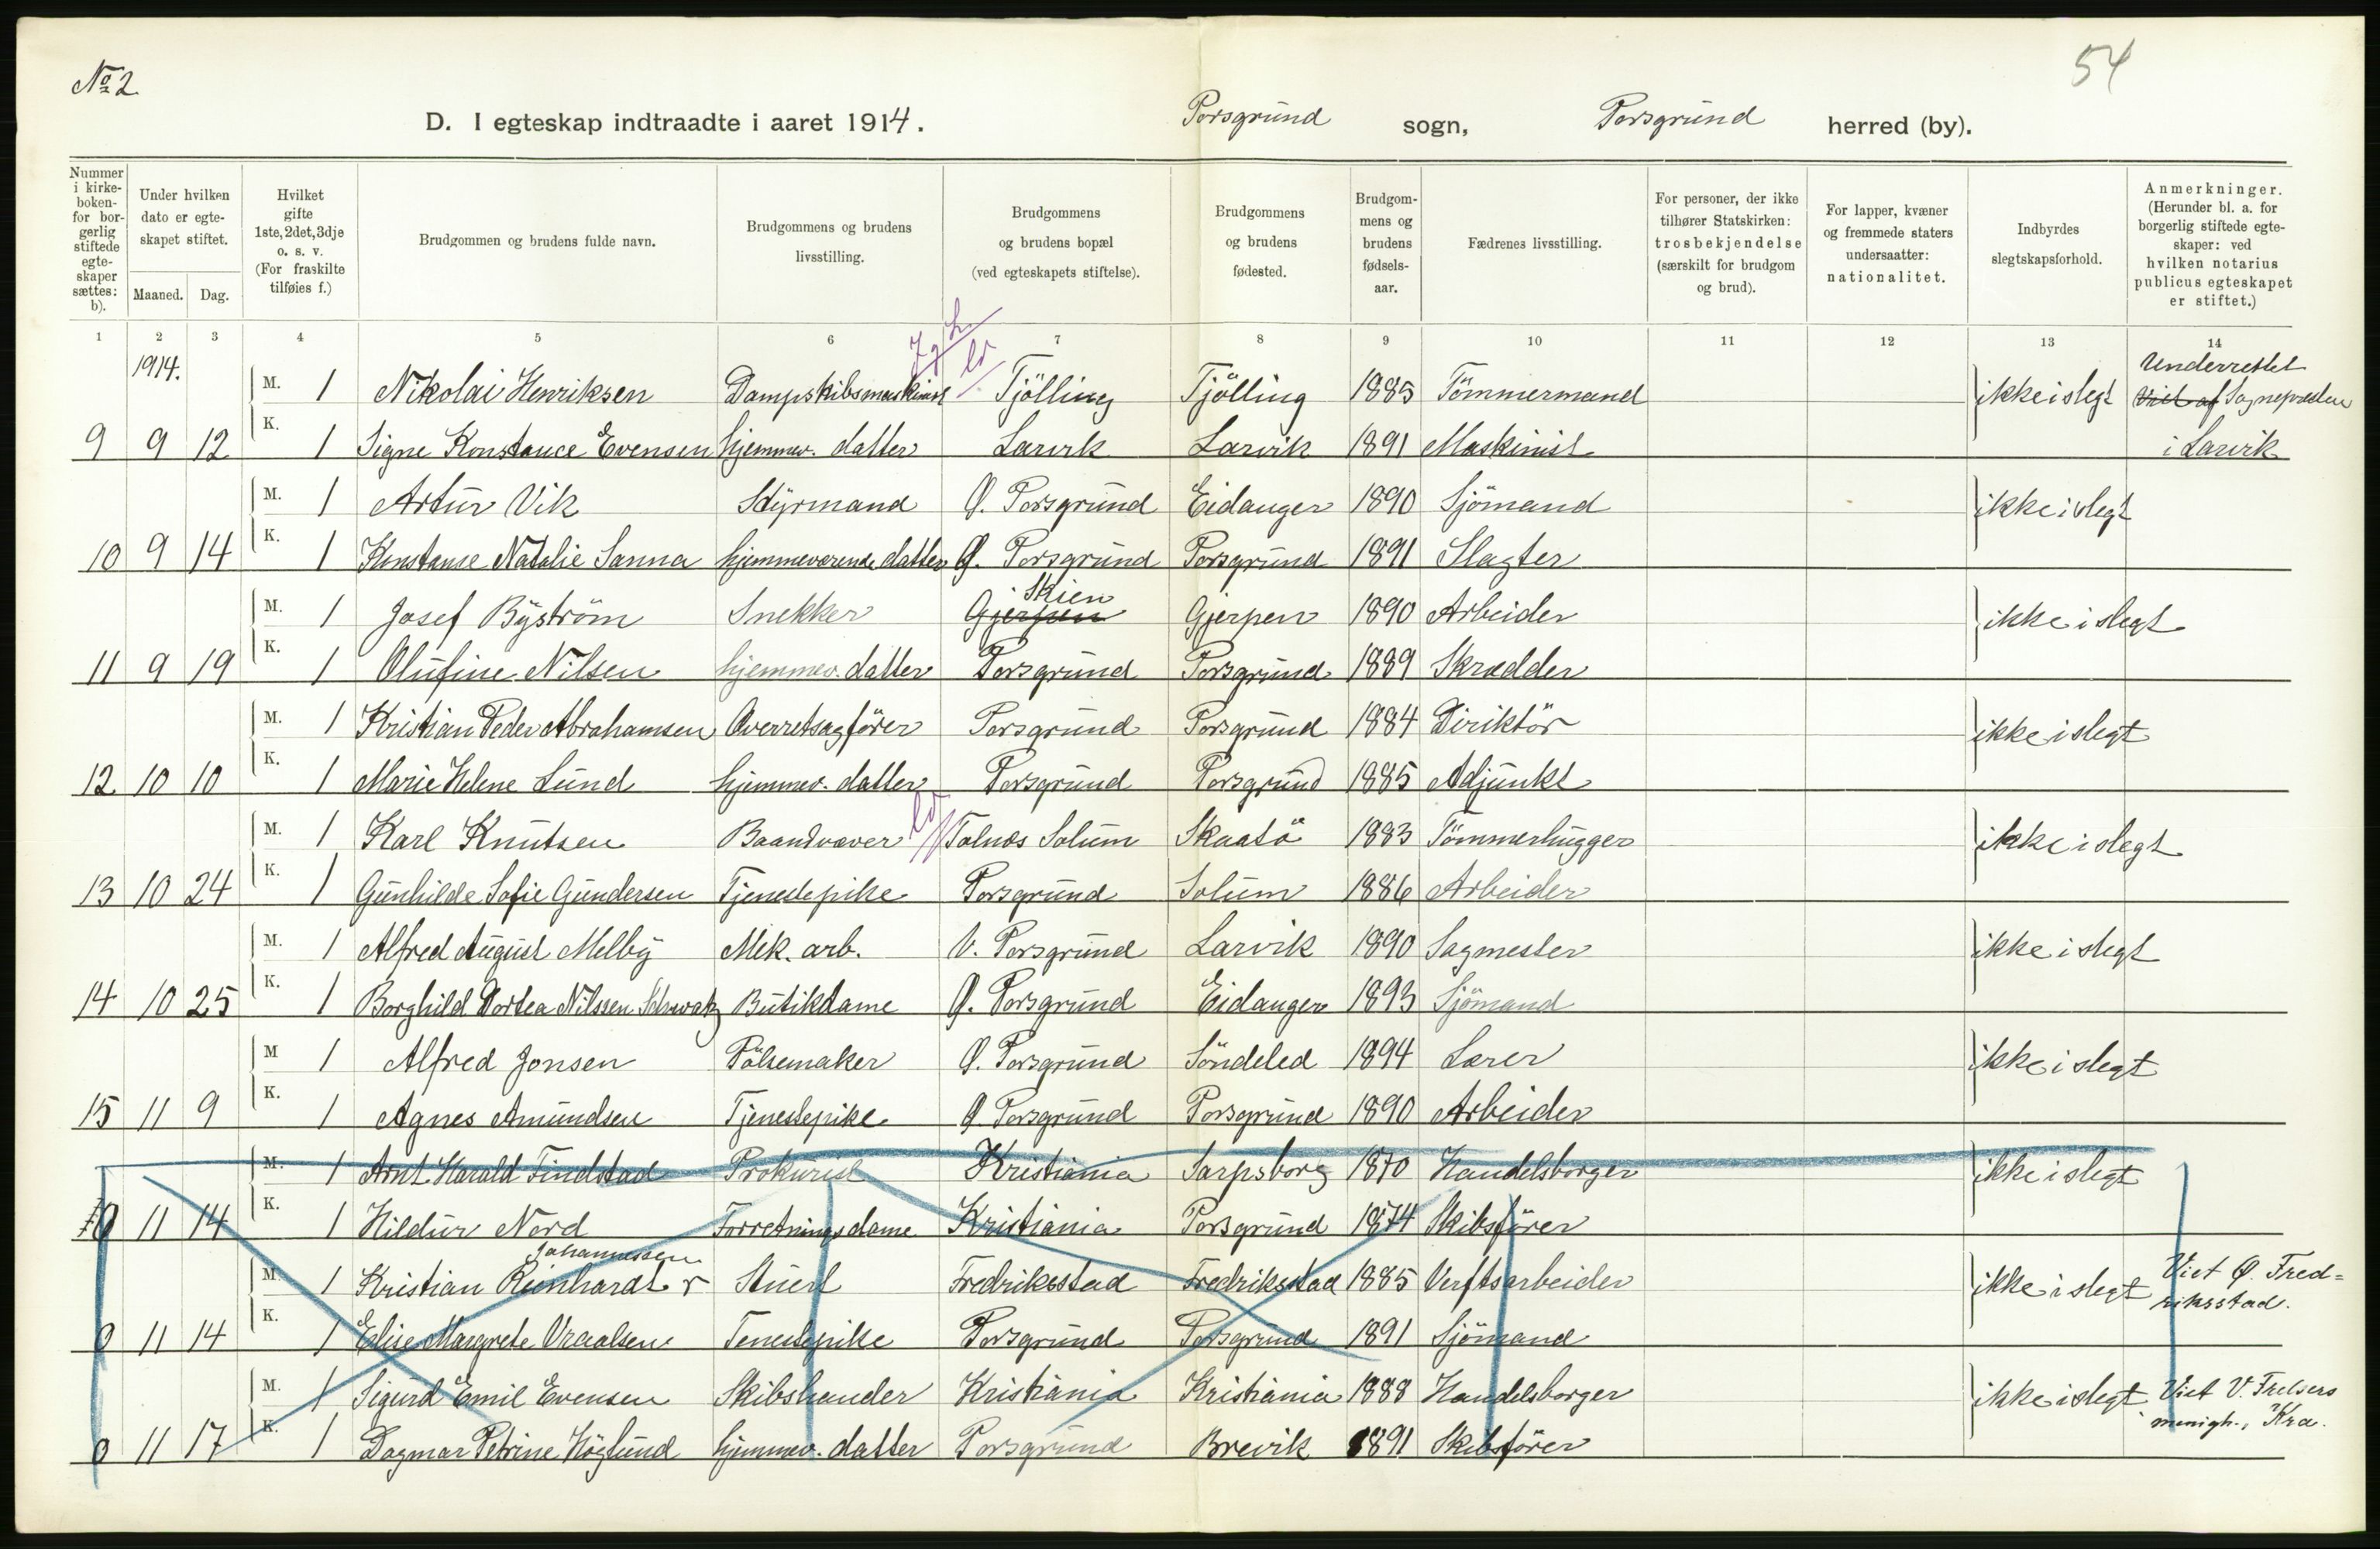 No 2
54
D. I egteskap indtraadte i aaret 1914. Porsgrund sogn, Porsgrund herred (by).
Nummer i kirke-boken- for bor-gerlig stiftede egte-skaper sættes: b).
Under hvilken dato er egte-skapet stiftet.
Maaned. Dag.
Hvilket gifte 1ste, 2det, 3dje o. s. v. (For fraskilte tilføies f.)
Brudgommen og brudens fulde navn.
Brudgommens og brudens livsstilling.
Brudgommens og brudens bopæl (ved egteskapets stiftelse).
Brudgommens og brudens fødested.
Brudgom-mens og brudens fødsels-aar.
Fædrenes livsstilling.
For personer, der ikke tilhører Statskirken: trosbekjendelse (særskilt for brudgom og brud).
For lapper, kvæner og fremmede staters undersaatter: nationalitet.
Indbyrdes slegtskapsforhold.
Anmerkninger. (Herunder bl. a. for borgerlig stiftede egte-skaper: ved hvilken notarius publicus egteskapet er stiftet.)
1 2 3 4 5 6 7 8 9 10 11 12 13 14
1914. Underrettet
M. 1 Nikolai Henriksen Dampskibsmaskinist Tjölling Tjölling 1885 Tömmermand ikke i slegt Viet af Sognepresten
9 9 12 K. 1 Signe Konstance Evensen hjemmev. datter Larvik Larvik 1891 Maskinist i Larvik
M. 1 Artur Vik Styrmand Ø. Porsgrund Eidanger 1890 Sjömand ikke i slegt
10 9 14 K. 1 Konstanse Natalie Sanna hjemmeværende datter Ø. Porsgrund Porsgrund 1891 Slagter
Skien
M. 1 Josef Byström Snekker Gjerpen Gjerpen 1890 Arbeider ikke i slegt
11 9 19 K. 1 Olufine Nilsen hjemmev. datter Porsgrund Porsgrund 1889 Skrædder
M. 1 Kristian Peder Abrahamsen Overretsagförer Porsgrund Porsgrund 1884 Diriktör ikke i slegt
12 10 10 K. 1 Marie Helene Lund hjemmev. datter Porsgrund Porsgrund 1885 Adjunkt
M. 1 Karl Knutsen Baandvæver Tolnæs Solum Skaatö 1883 Tömmerhugger ikke i slegt
13 10 24 K. 1 Gunhilde Sofie Gundersen Tjenestepike Porsgrund Solum 1886 Arbeider
M. 1 Alfred August Melby Mek. arb. V. Porsgrund Larvik 1890 Sagmester ikke i slegt
14 10 25 K. 1 Borghild Dortea Nilssen Schwatz Butikdame Ø. Porsgrund Eidanger 1893 Sjömand
M 1 Alfred Jonsen Pölsemaker Ø. Porsgrund Söndeled 1894 Lærer ikke i slegt
15 11 9 K. 1 Agnes Amundsen Tjenestepike Ø. Porsgrund Porsgrund 1890 Arbeider
M. 1 Arnt Harald Findstad Prokurist Kristiania Sarpsborg 1870 Handelsborger ikke i slegt
0 11 14 K. 1 Hildur Nord Forretningsdame Kristiania Porsgrund 1874 Skibsförer
Johannessen
M. 1 Kristian Reinhardt Stuert Fredriksstad Fredriksstad 1885 Verftsarbeider ikke i slegt Viet Ø. Fred=
riksstad.
0 11 14 K. 1 Elise Margrete Vraalsen Tenestepike Porsgrund Porsgrund 1891 Sjömand
M. 1 Sigurd Emil Evensen Skibshandler Kristiania Kristiania 1888 Handelsborger ikke i slegt Viet V. Frelsers
menigh., Kra.
0 11 17 K. 1 Dagmar Petrine Höglund hjemmev. datter Porsgrund Brevik 1891 Skibsförer